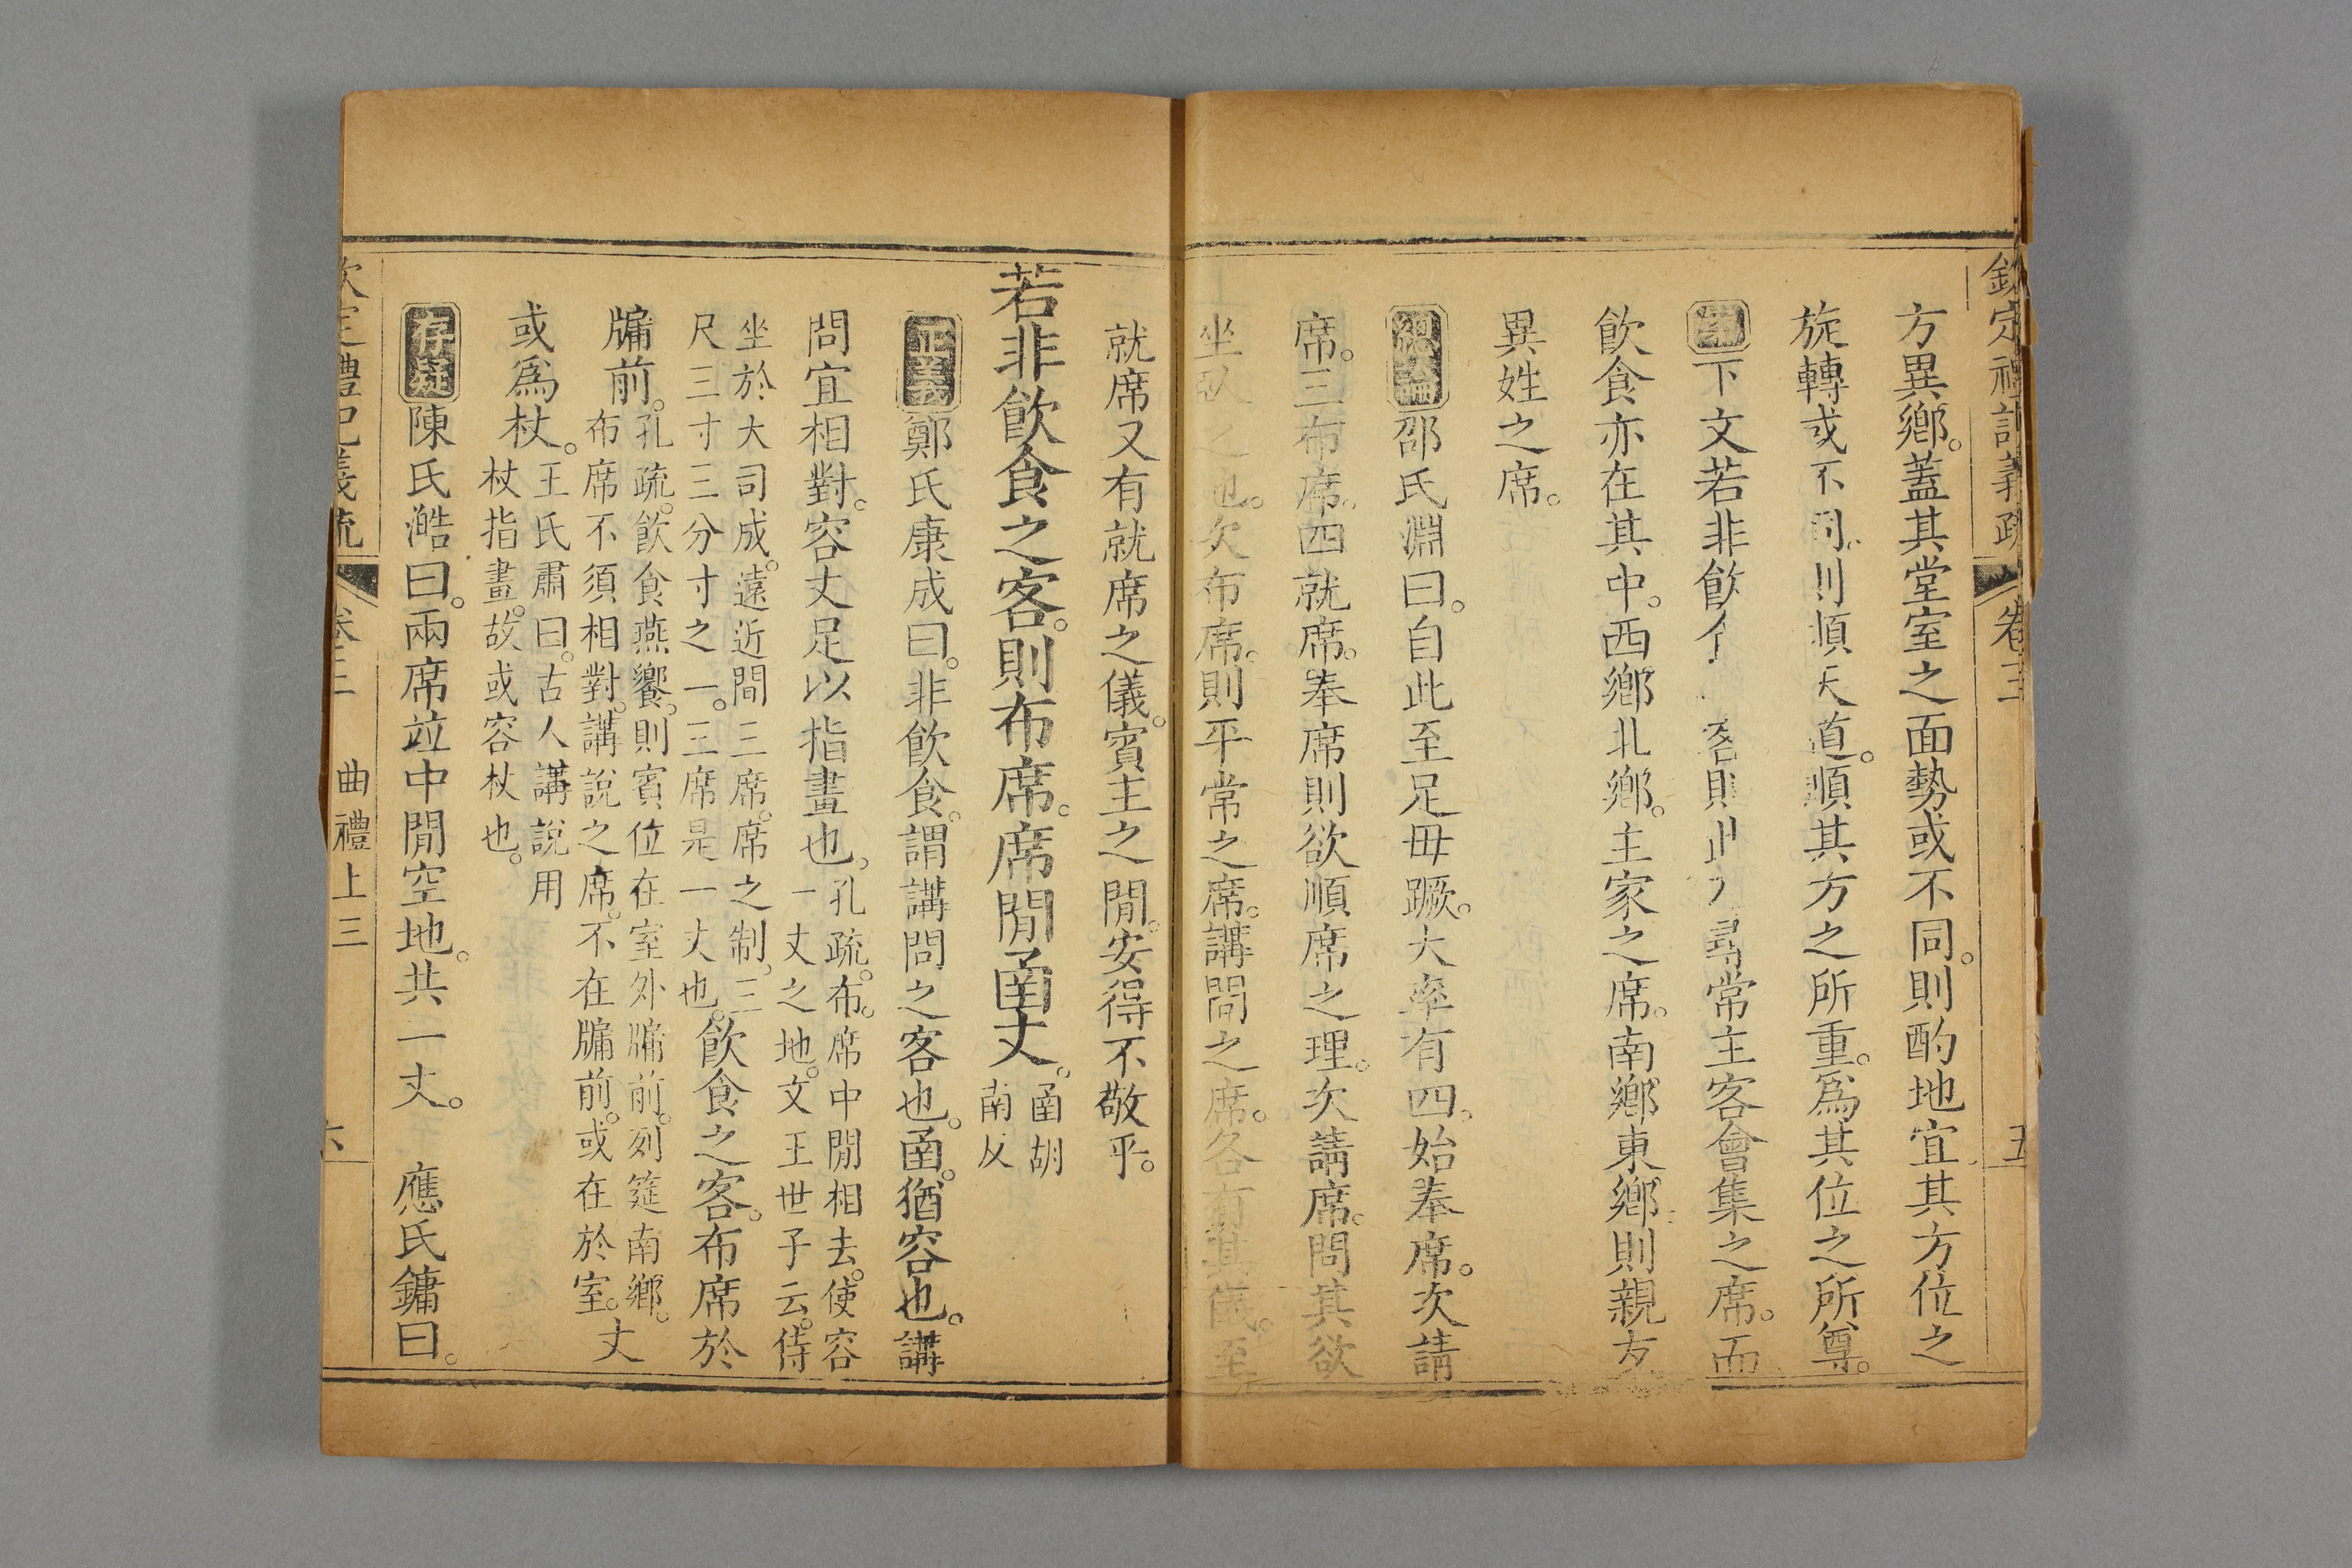 欽定禮記義疏 卷三 五
方異鄉。蓋其堂室之面勢或不同。則酌地宜其方位之
旋轉或不同。則順天道。順其方之所重。爲其位之所尊。
案下文若非飲食 客則此乃尋常主客會集之席。而
飲食亦在其中。西鄉北鄉。主家之席。南鄉東鄉。則親友
異姓之席。
總論邵氏淵曰。自此至足毋蹶。大率有四。始奉席。次請
席。三布席。四就席。奉席則欲順席之理。次請席。問其欲
坐臥之也。次布席。則平常之席。講問之席。各有其儀。至
就席又有就席之儀。賓主之閒。安得不敬乎。
若非飲食之客。則布席。席閒函丈。函胡
南反
正義鄭氏康成曰。非飲食。謂講問之客也。函。猶容也。講
問宜相對。容丈足以指畫也。孔疏。布。席中閒相去。使容
一丈之地。文王世子云。侍
坐於大司成。遠近間三席。席之制。三
尺三寸三分寸之一。三席是一丈也。飲食之客。布席於
牖前。孔疏。飲食燕饗。則賓位在室外牖前。列筵南鄉。
布席不須相對。講說之席。不在牖前。或在於室。丈
或爲杖。王氏肅曰。古人講說用
杖指畫。故或容杖也。
存疑陳氏澔曰。兩席竝中閒空地。共一丈。 應氏鏞曰。
欽定禮記義疏 卷三 曲禮上三 六